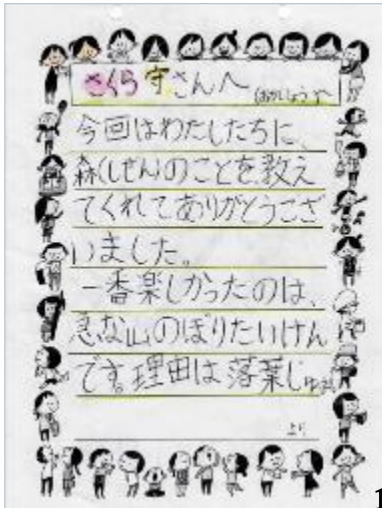 さくら守さんへ
今回はわたしたちに、
森(しぜん)のことを教え
てくれてありがとうござ
いました。
一番楽しかったのは、
急な山のぼりたいけん
です。理由は落葉じゅ
より
1